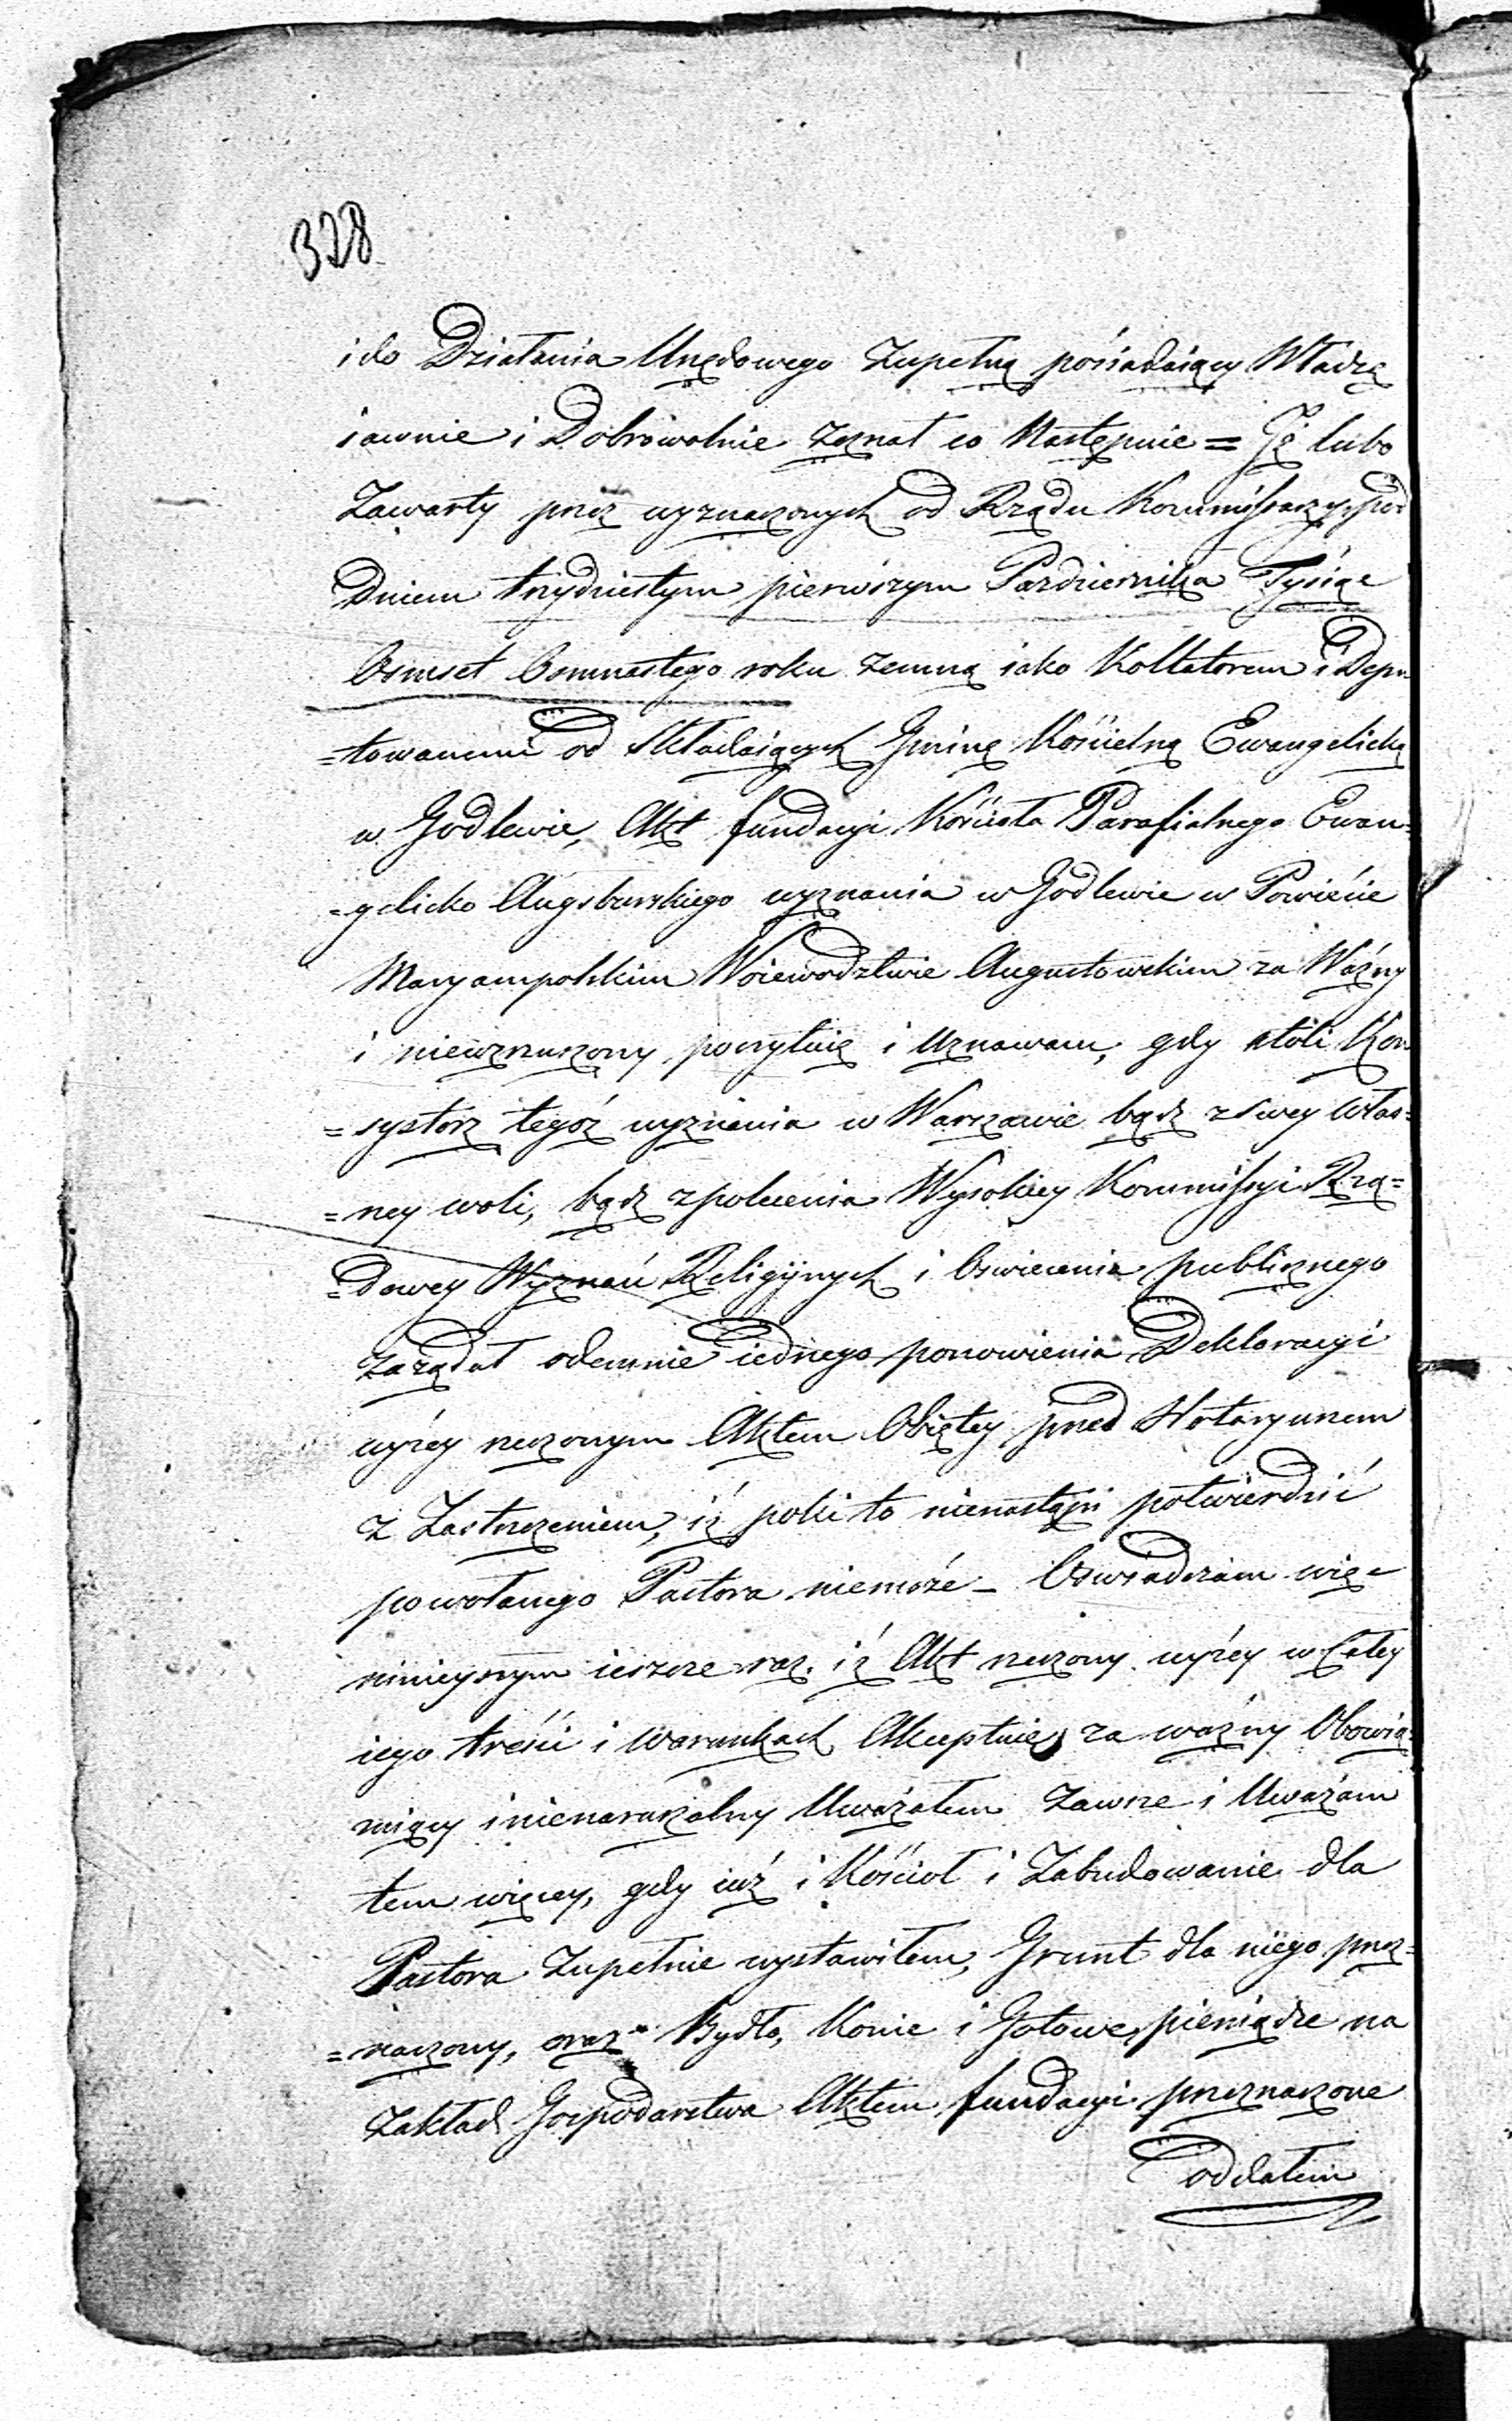 328
i do Działania Urzędowego Zupełną pośiadaiący Władzę
iawnie i Dobrowolnie zeznał co Następuie = Iż lubo
Zawarty przez wyznaczonych od Rządu Kommissarzy, pod
Dniem trzydziestym pierwszym Pazdziernika Tysiąc
Osmset Osmnastego roku zemną iako Kollatorem i Depu-
=towanemi od Składaiących Gminę Kościelną Ewangelicką
w Godlewie, Akt fundacyi Kościoła Parafialnego Ewan=
=gelicko Augsburskiego wyznania w Godlewie w Powiećie
Maryampolskim Woiewodztwie Augustowskim za Ważny
i niewzruszony poczytuię i Uznawam, gdy atóli Kon
=systorz tegóż wyznania w Warszawie bądz zswey włas=
=ney woli, bądz zpolecenia Wysokiey Kommissyi Rzą=
=dowey Wyznań Religijnych i Oswiecenia publicznego
zażądał odemnie iednego ponowienia Deklaracyi
wyżey rzeczonym Aktem Obiętey, przed Notaryuszem
z Zastrzeżeniem, iż poki to nienastąpi potwierdzić
powołanego Pastora niemoże – Oswiadczam więc
ninieyszym ieszcze raz. iż Akt rzeczony wyżey w Całey
iego treści i warunkach Akceptuię, za ważny Obowią=
zuiący i nienaruszalny Uważałem Zawsze i Uważam
tem więcey, gdy iuż i Kościoł i Zabudowanie dla
Pastora Zupełnie wystawiłem, Grunt dla niego prze=
=znaczony, oraz Bydło, Konie i Gotowe pieniądze na
Zakład Gospodarstwa Aktem fundacyi przeznaczone
oddałem